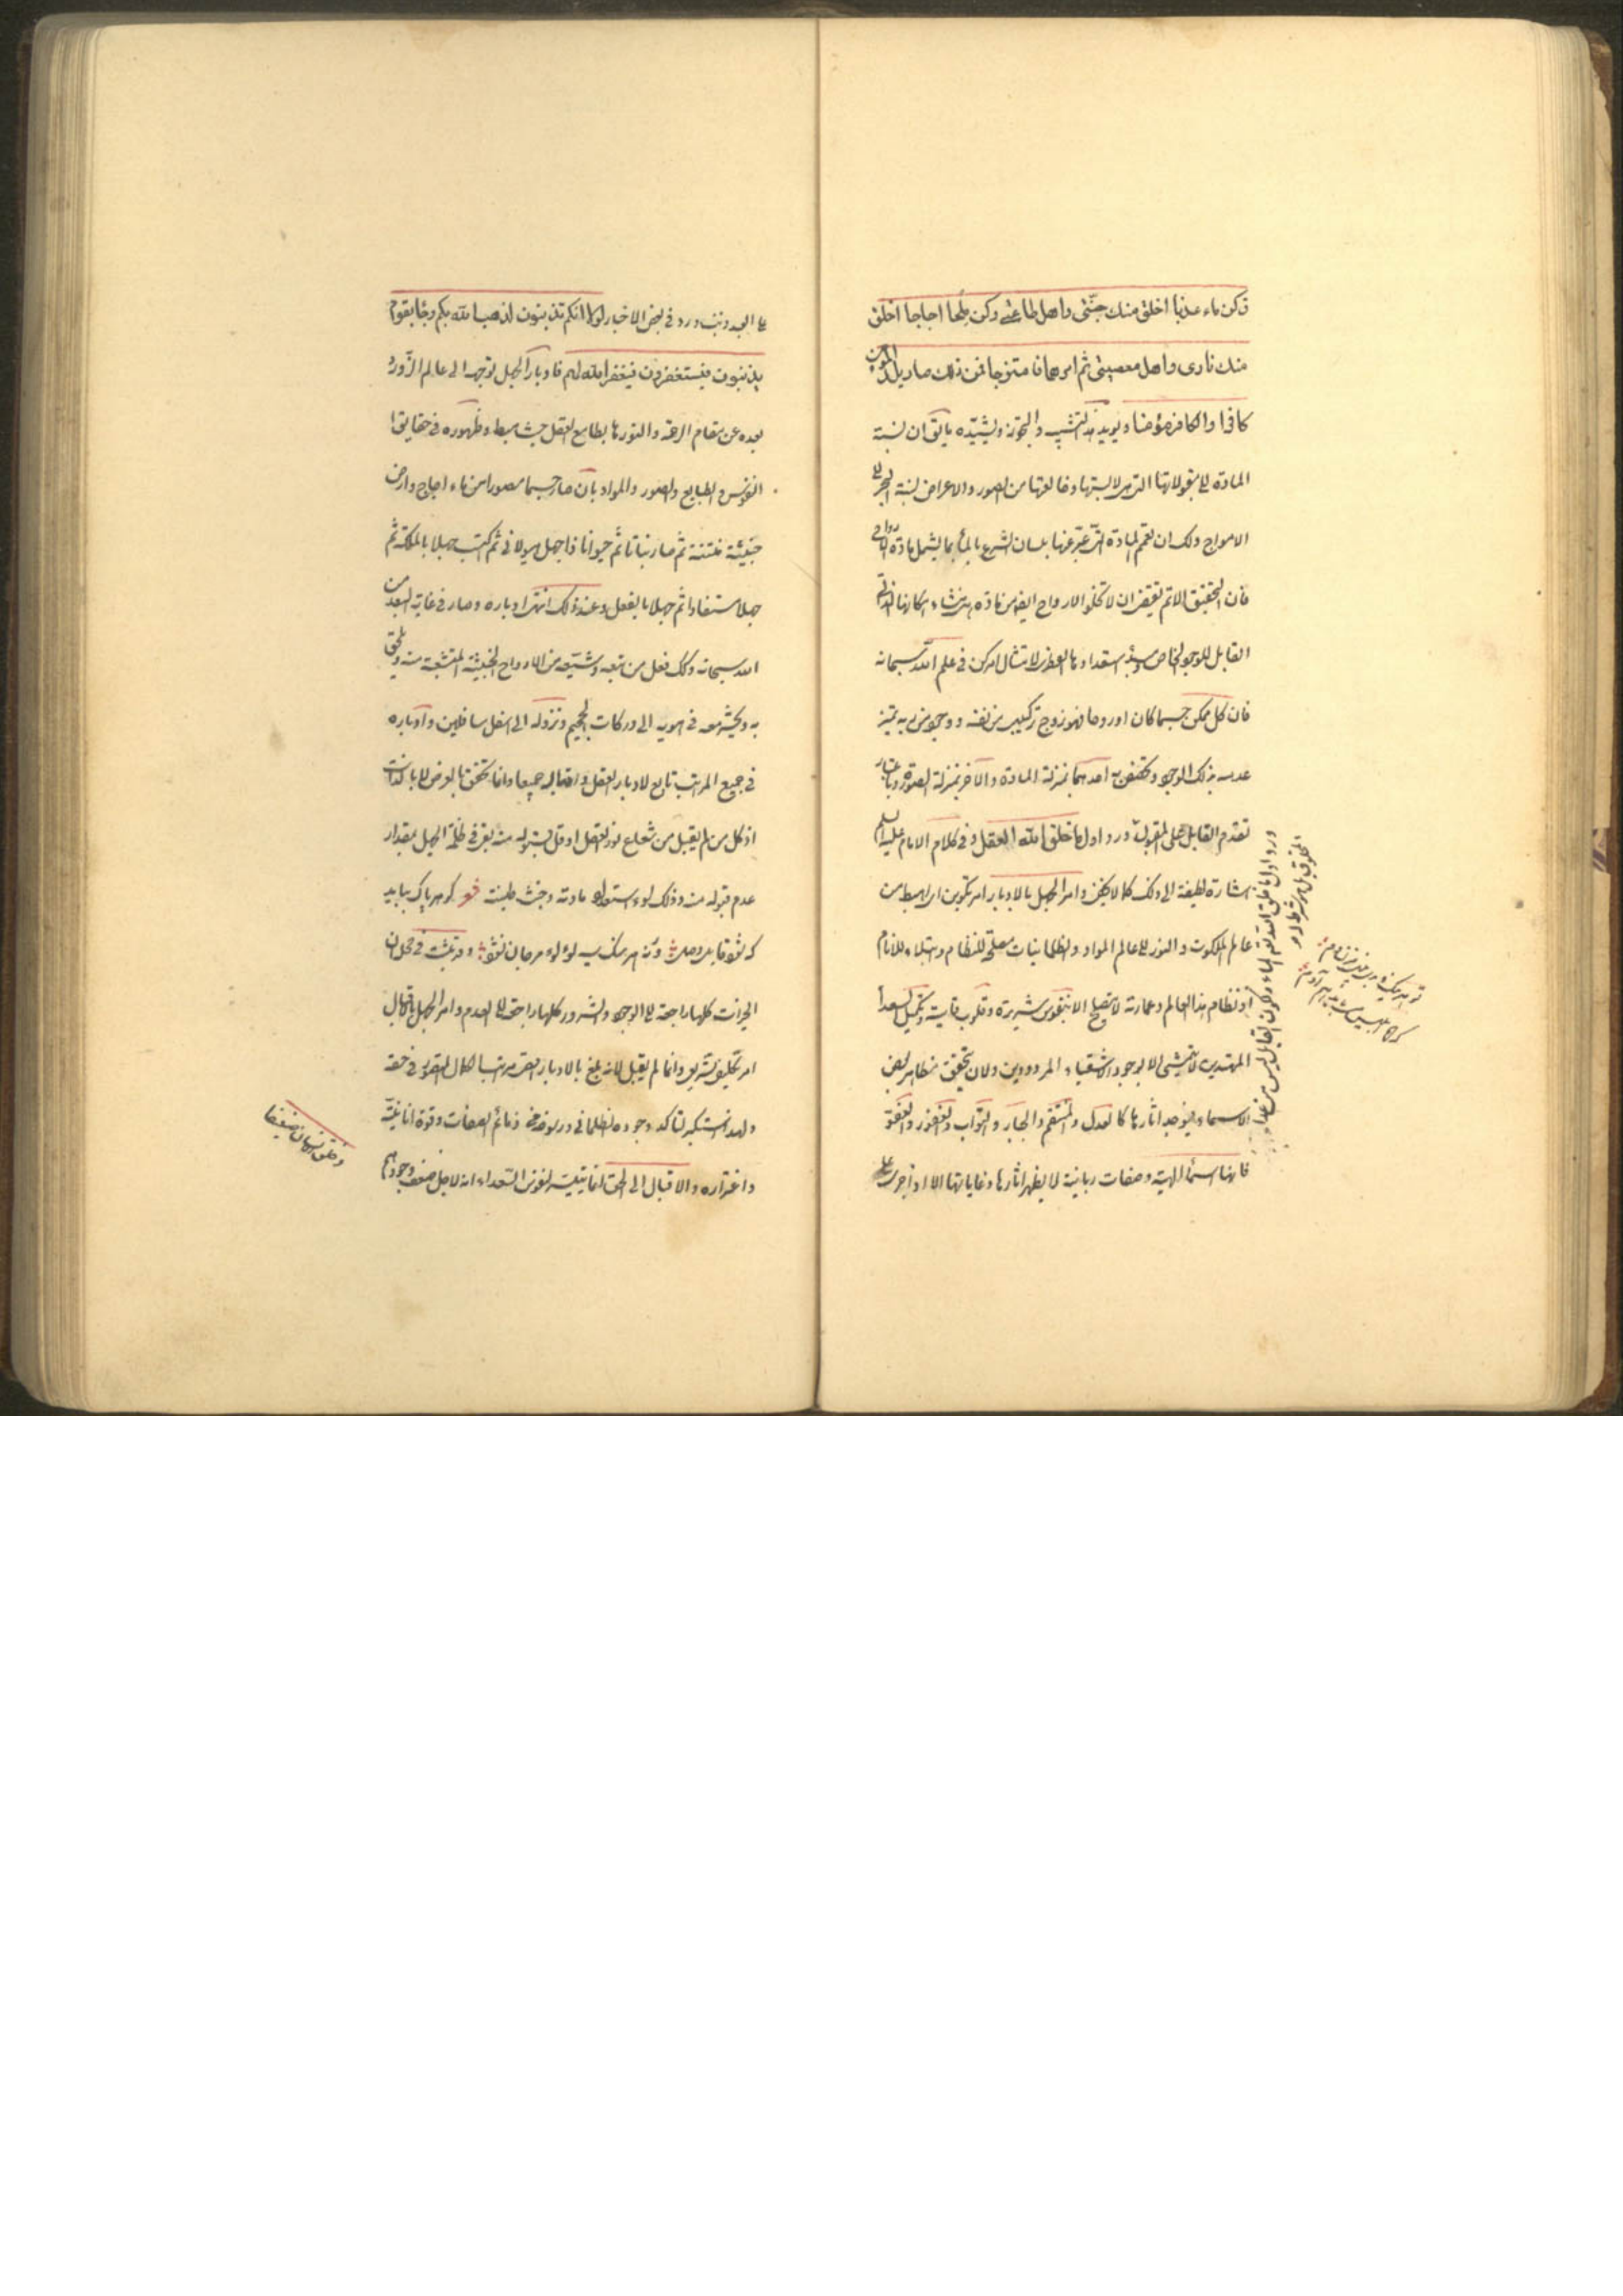 وكن ماء عذبا اخلق منك جنتى واهل طاعتى وكن ملحا اجاجا اخلق
منك نارى واهل معصيتى ثم امرهما فامتزجا فمن ذلك صار يلد المؤمن
كافرا والكافر مؤمنا ويؤيد هذا التشبيه والتجوز ويشيده ما يق ان نسبة
المادة الى مقبولاتها التى لابستها وخالعتها من الصور والاعراض نسبة البحر الى
الامواج ولك ان تعمم المادة التى عبر عنها بلسان الشرع بالماء بما يشمل مادة الارواح
فان التحقيق الاتم يقتضى ان لا تخلو الارواح ايضا من مادة هى منشاء امكانها الذاتى
القابل للوجود الخاص ومبدء استعدادها الفطرى لامتثال امر كن فى علم الله سبحانه
فان كل ممكن جسما كان او روحا فهو زوج تركيبى من نفسه ووجود من ربه يتميز
عدمه بذلك الوجود احدهما بمنزلة المادة والاخر بمنزلة الصورة وباعتبار
تقدم القابل على المقبول ورد اول ما خلق الله العقل وفى كلام الامام عليه السلم
اشارة لطيفة الى ذلك كما لا يخفى وامر الجهل بالادبار امر تكوين اى اهبط من
عالم الملكوت والنور الى عالم المواد والظلمانيات مصلحة للنظام وابتلاء للانام
اذ نظام هذا العالم وعمارته لا يصلح الا بنفوس شريرة وقلوب قاسية وتكميل السعداء
المهتدين لا يتمشى الا بوجود الاشقياء المردودين ولان تحقق مظاهر بعض
الاسماء اثارها كالعدل والمنتقم والجبار والتواب والغفور والعفو
فانها اسماء الهية وصفات ربانية لا يظهر اثارها وغاياتها الا اذا جرى على
ورد اول ما خلق الله الماء ولكون القابل ليس من
المخلوق بل هو شرط له
على العبد ذنب ورد فى بعض الاخبار لولا انكم تذنبون لذهب الله بكم وجاء بقوم
يذنبون فيستغفرون فيغفر الله لهم فادبار الجهل توجهه الى عالم الزور و
بعده عن مقام الرحمة والنور بطابع العقل حيث هبط وظهوره فى حقايق
النفوس والطبايع والصور والمواد بان صار جسما مصورا من ماء اجاج وارض
خبيثة منتنة ثم صار نباتا ثم حيوانا ذا جهل هيولانى ثم اكتسب جهلا بالملكة ثم
جهلا مستفادا ثم جهلا بالفعل وعند ذلك انتهى ادباره وصار فى غاية البعد من
الله سبحانه وكك فعل من تبعه وشيعه من الارواح الخبيثة المنشعبة منه ويلحق
به ويحشر معه فى هويه الى دركات الجحيم ونزوله الى اسفل سافلين وادباره
فى جميع المراتب تابع لادبار العقل واقباله جميعا وانما تحقق بالعرض لا بالذات
اذ كل من لم يقبل من شعاع نور العقل او قل قبوله منه بقى فى ظلمة الجهل بمقدار
عدم قبوله منه وذلك لسوء استعداد مادته وخبث طينته شعر گوهر پاك ببايد
كه شود قابل فيض ورنه هر سنگ سيه لؤلؤ ومرجان نشود وقد ثبت فى محله ان
الخيرات كلها راجعة الى الوجود والشرور كلها راجعة الى العدم وامر الجهل باقبال
امر تكليف تشريعى وانما لم يقبل لانه بلغ بالادبار اقصى مراتب الكمال المتصور فى حقه
ولهذا استكبر لتاكد وجوده الظلمانى ورسوخه فى ذمائم الصفات وقوة انانيته
واغتراره والاقبال الى الحق انما يتيسر لنفوس السعداء لاجل ضعف وجودهم
وخلق الانسان ضعيفا